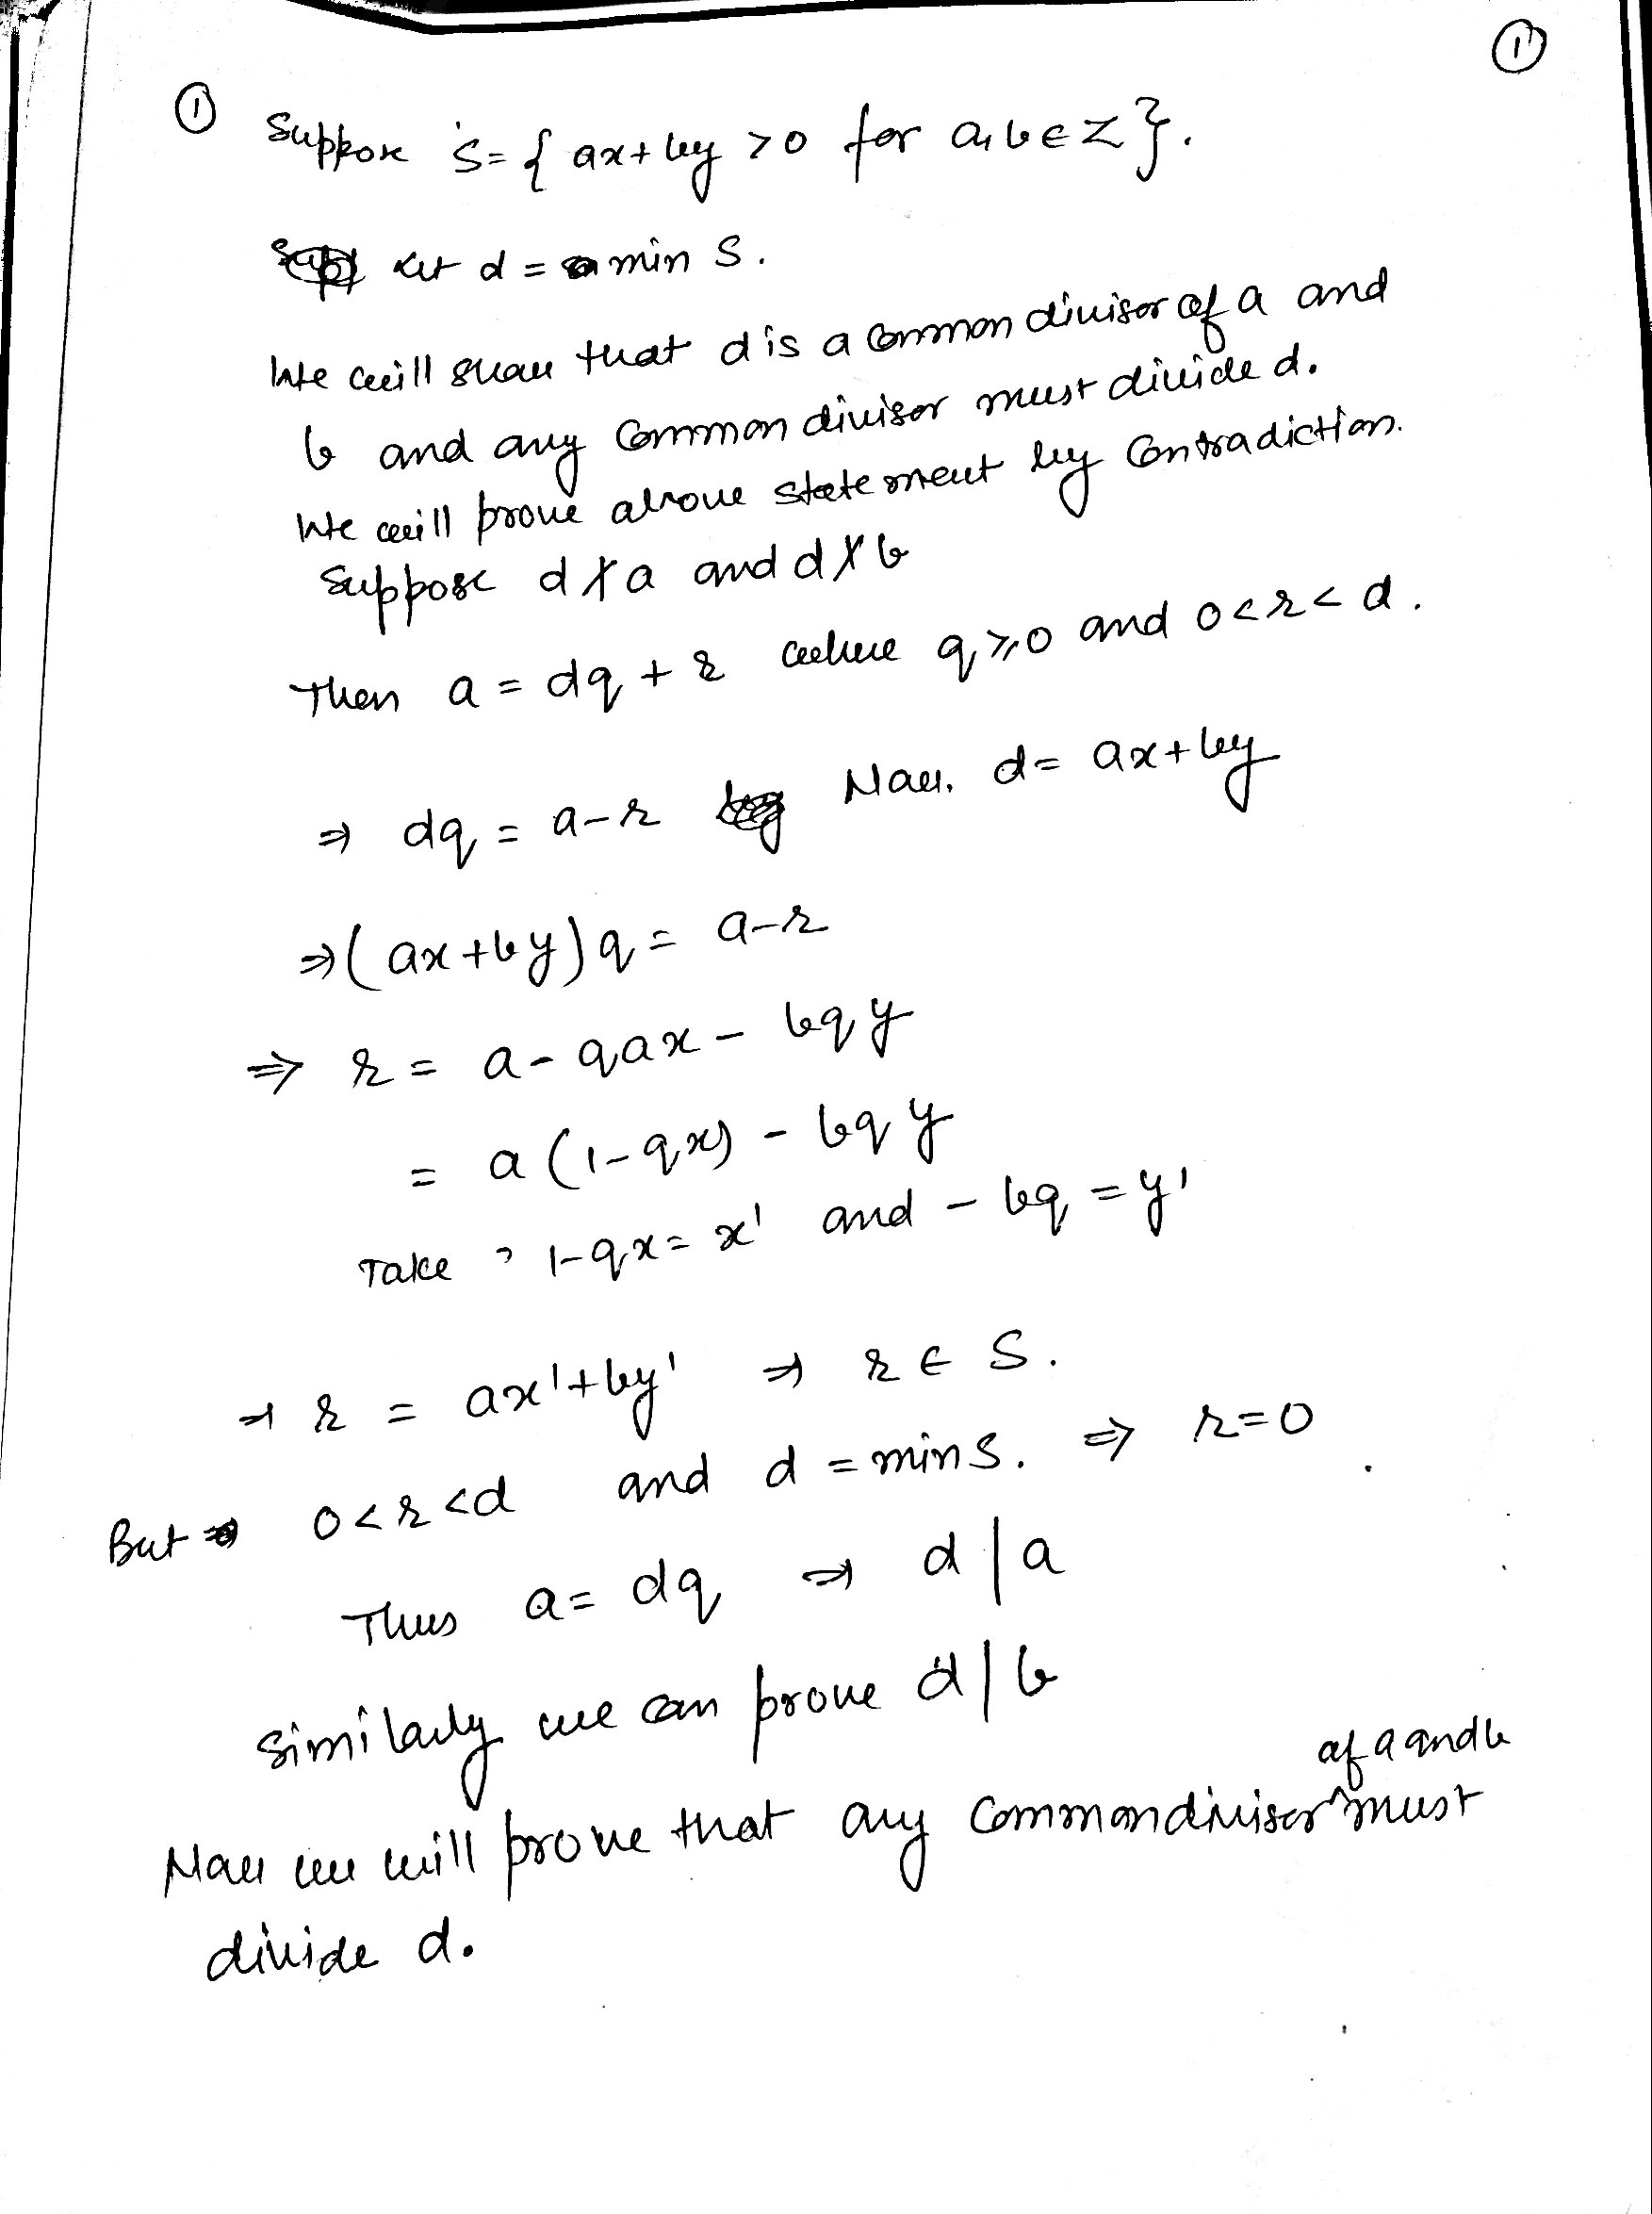 ①
① Suppose S = { ax + by > 0 for a, b ∈ Z }.
Let d = min S.
We will show that d is a common divisor of a and
b and any common divisor must divide d.
We will prove above statement by contradiction.
Suppose d ∤ a and d ∤ b
Then a = dq + r where q ⩾ 0 and 0 < r < d.
⇒ dq = a - r Now, d = ax + by
⇒ (ax + by) q = a - r
⇒ r = a - qax - bqy
= a (1 - qx) - bqy
Take, 1 - qx = x' and - bq = y'
⇒ r = ax' + by' ⇒ r ∈ S.
But 0 < r < d and d = min S. ⇒ r = 0
Thus a = dq ⇒ d | a
Similarly we can prove d | b
Now we will prove that any common divisor of a and b must
divide d.